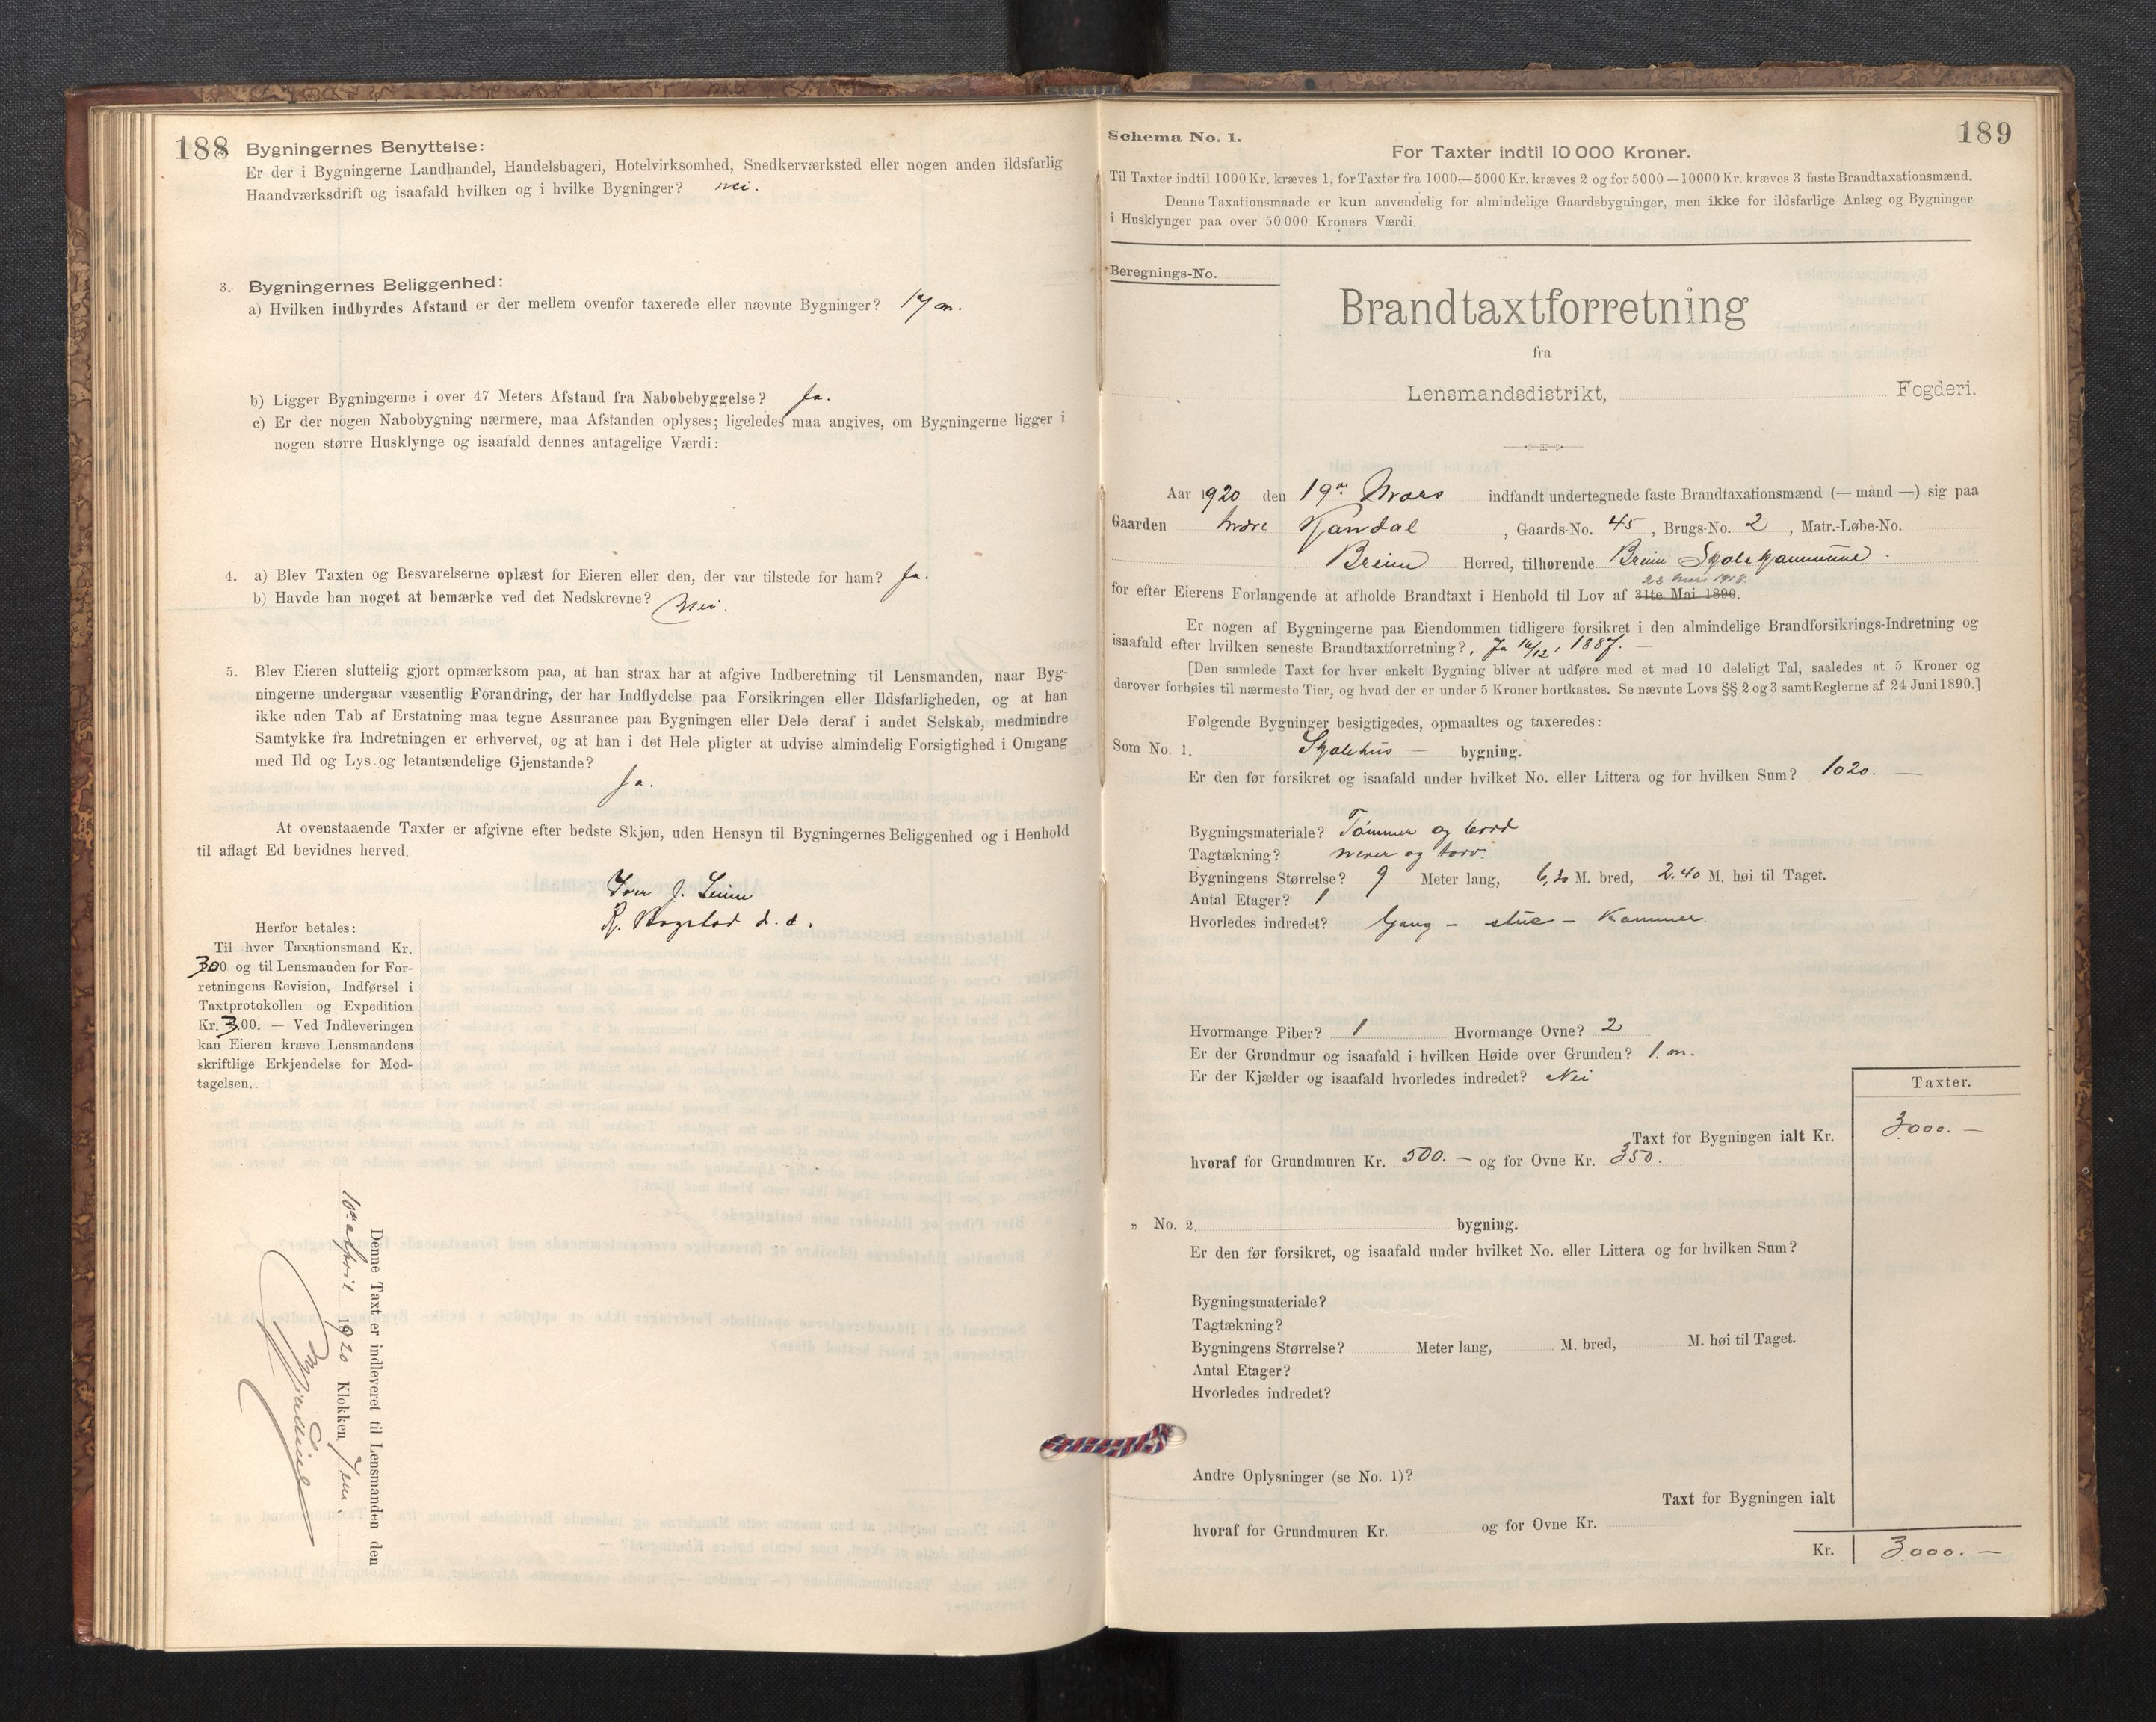 188
Bygningernes Benyttelse:
Er der i Bygningerne Landhandel, Handelsbageri, Hotelvirksomhed, Snedkerværksted eller nogen anden ildsfarlig
Haandværksdrift og isaafald hvilken og i hvilke Bygninger? nei.
3. Bygningernes Beliggenhed:
a) Hvilken indbyrdes Afstand er der mellem ovenfor taxerede eller nævnte Bygninger? 17 m.
b) Ligger Bygningerne i over 47 Meters Afstand fra Nabobebyggelse? Ja.
c) Er der nogen Nabobygning nærmere, maa Afstanden oplyses; ligeledes maa angives, om Bygningerne ligger i
nogen større Husklynge og isaafald dennes antagelige Værdi:
4. a) Blev Taxten og Besvarelserne oplæst for Eieren eller den, der var tilstede for ham? Ja.
b) Havde han noget at bemærke ved det Nedskrevne? Nei.
5. Blev Eieren sluttelig gjort opmærksom paa, at han strax har at afgive Indberetning til Lensmanden, naar Byg-
ningerne undergaar væsentlig Forandring, der har Indflydelse paa Forsikringen eller Ildsfarligheden, og at han
ikke uden Tab af Erstatning maa tegne Assurance paa Bygningen eller Dele deraf i andet Selskab, medmindre
Samtykke fra Indretningen er erhvervet, og at han i det Hele pligter at udvise almindelig Forsigtighed i Omgang
med Ild og Lys og letantændelige Gjenstande?
Ja.
At ovenstaaende Taxter er afgivne efter bedste Skjøn, uden Hensyn til Bygningernes Beliggenhed og i Henhold
til aflagt Ed bevidnes herved.
Iver J.
R. d. e.
Herfor betales:
Til hver Taxationsmand Kr.
300 og til Lensmanden for For-
retningens Revision, Indførsel i
Taxtprotokollen og Expedition
Kr. 3.00. — Ved Indleveringen
kan Eieren kræve Lensmandens
skriftlige Erkjendelse for Mod-
tagelsen.
Denne Taxt er indleveret til Lensmanden den
10de april 1920 Klokken
189
Schema No. 1.
For Taxter indtil 10 000 Kroner.
Til Taxter indtil 1000 Kr. kræves 1, for Taxter fra 1000—5000 Kr. kræves 2 og for 5000—10000 Kr. kræves 3 faste Brandtaxationsmænd.
Denne Taxationsmaade er kun anvendelig for almindelige Gaardsbygninger, men ikke for ildsfarlige Anlæg og Bygninger
i Husklynger paa over 50 000 Kroners Værdi.
Beregnings-No.
Brandtaxtforretning
fra
Lensmandsdistrikt, Fogderi.
Aar 1920 den 19de Mars indfandt undertegnede faste Brandtaxationsmænd (— mand —) sig paa
Gaarden Indre Kandal, Gaards-No. 45, Brugs-No. 2, Matr.-Løbe-No.
Breim Herred, tilhørende Breim Skolekommune.
22 Mars 1918.
for efter Eierens Forlangende at afholde Brandtaxt i Henhold til Lov af 31te Mai 1890.
Er nogen af Bygningerne paa Eiendommen tidligere forsikret i den almindelige Brandforsikrings-Indretning og
isaafald efter hvilken seneste Brandtaxtforretning? Ja 16/12, 1887. —
[Den samlede Taxt for hver enkelt Bygning bliver at udføre med et med 10 deleligt Tal, saaledes at 5 Kroner og
derover forhøies til nærmeste Tier, og hvad der er under 5 Kroner bortkastes. Se nævnte Lovs §§ 2 og 3 samt Reglerne af 24 Juni 1890.]
Følgende Bygninger besigtigedes, opmaaltes og taxeredes:
Som No. 1. Skolehus — bygning.
Er den før forsikret og isaafald under hvilket No. eller Littera og for hvilken Sum? 1020. —
Bygningsmateriale? Tømmer og bord
Tagtækning? never og torv.
Bygningens Størrelse? 9 Meter lang, 6,30 M. bred, 2.40 M. høi til Taget.
Antal Etager? 1
Hvorledes indredet? Gang – stue – Kammer.
Hvormange Piber? 1 Hvormange Ovne? 2
Er der Grundmur og isaafald i hvilken Høide over Grunden? 1. m.
Er der Kjælder og isaafald hvorledes indredet? Nei
Taxter.
Taxt for Bygningen ialt Kr. 3000. —
hvoraf for Grundmuren Kr. 500. — og for Ovne Kr. 350.
„ No. 2 bygning.
Er den før forsikret, og isaafald under hvilket No. eller Littera og for hvilken Sum?
Bygningsmateriale?
Tagtækning?
Bygningens Størrelse? Meter lang, M. bred, M. høi til Taget.
Antal Etager?
Hvorledes indredet?
Andre Oplysninger (se No. 1)?
Taxt for Bygningen ialt
hvoraf for Grundmuren Kr. og for Ovne Kr.
Kr. 3000. —